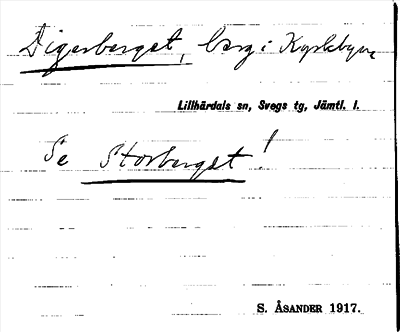 Digerberget, berg i Kyrkbyn
Lillhärdals sn, Svegs tg, Jämtl. l.
Se Storberget!
S. ÅSANDER 1917.